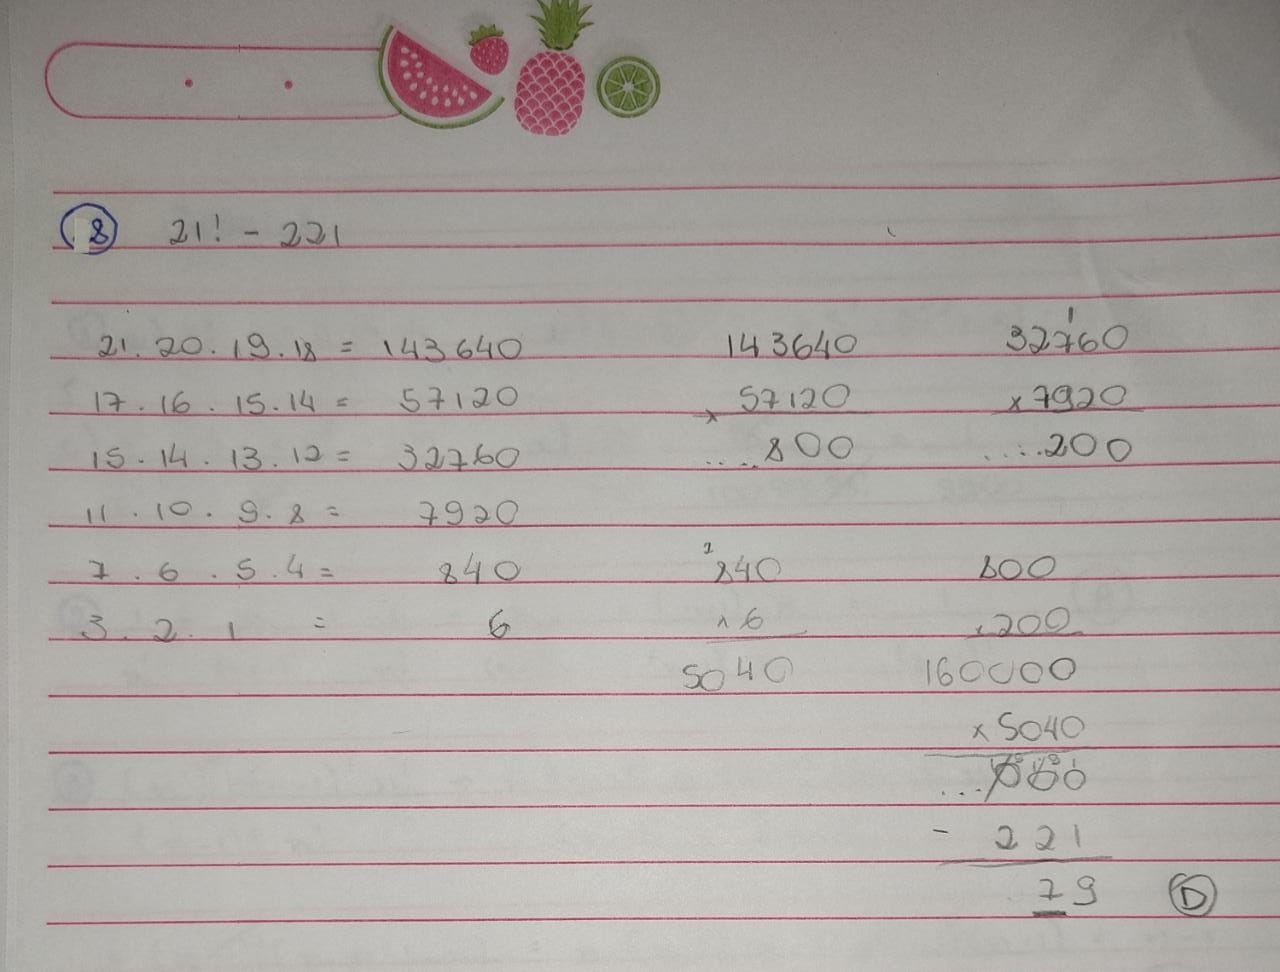 8 21! - 221
21 . 20 . 19 . 18 = 143640
17 . 16 . 15 . 14 = 57120
15 . 14 . 13 . 12 = 32760
11 . 10 . 9 . 8 = 7920
7 . 6 . 5 . 4 = 840
3 . 2 . 1 = 6
143640
x 57120
.....800
1
32760
x 7920
.....200
2
840
x 6
5040
800
x 200
160000
x 5040
...000
- 221
79 D